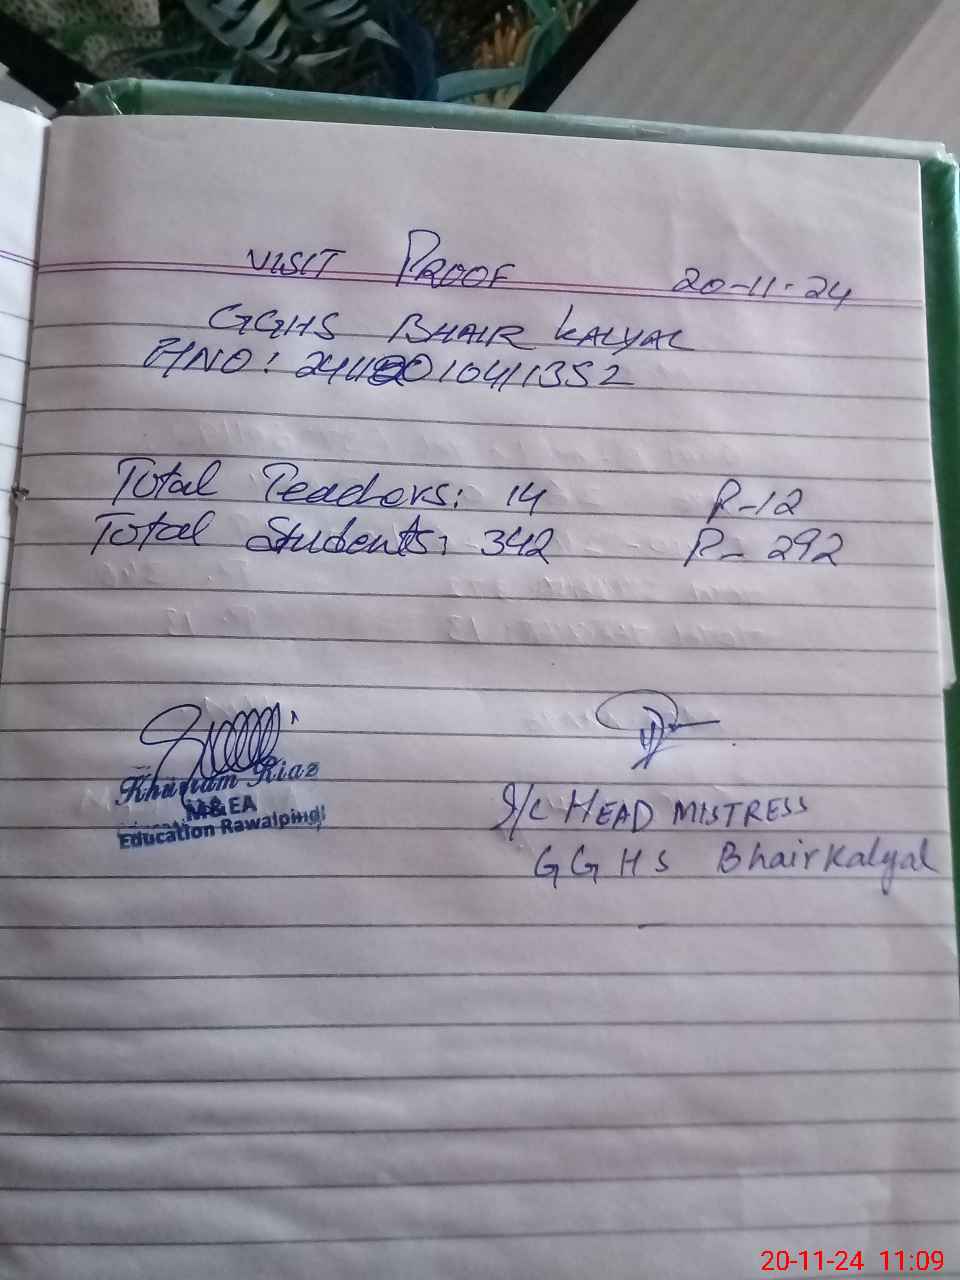 VISIT PROOF 20-11-24
GGHS BHAIR KALYAL
Total Teachers: 14 P-12
Total Students: 342 P- 292
Khurram Riaz
M&EA
Education Rawalpindi
I/C HEAD MISTRESS
GGHS Bhair Kalyal
20-11-24 11:09